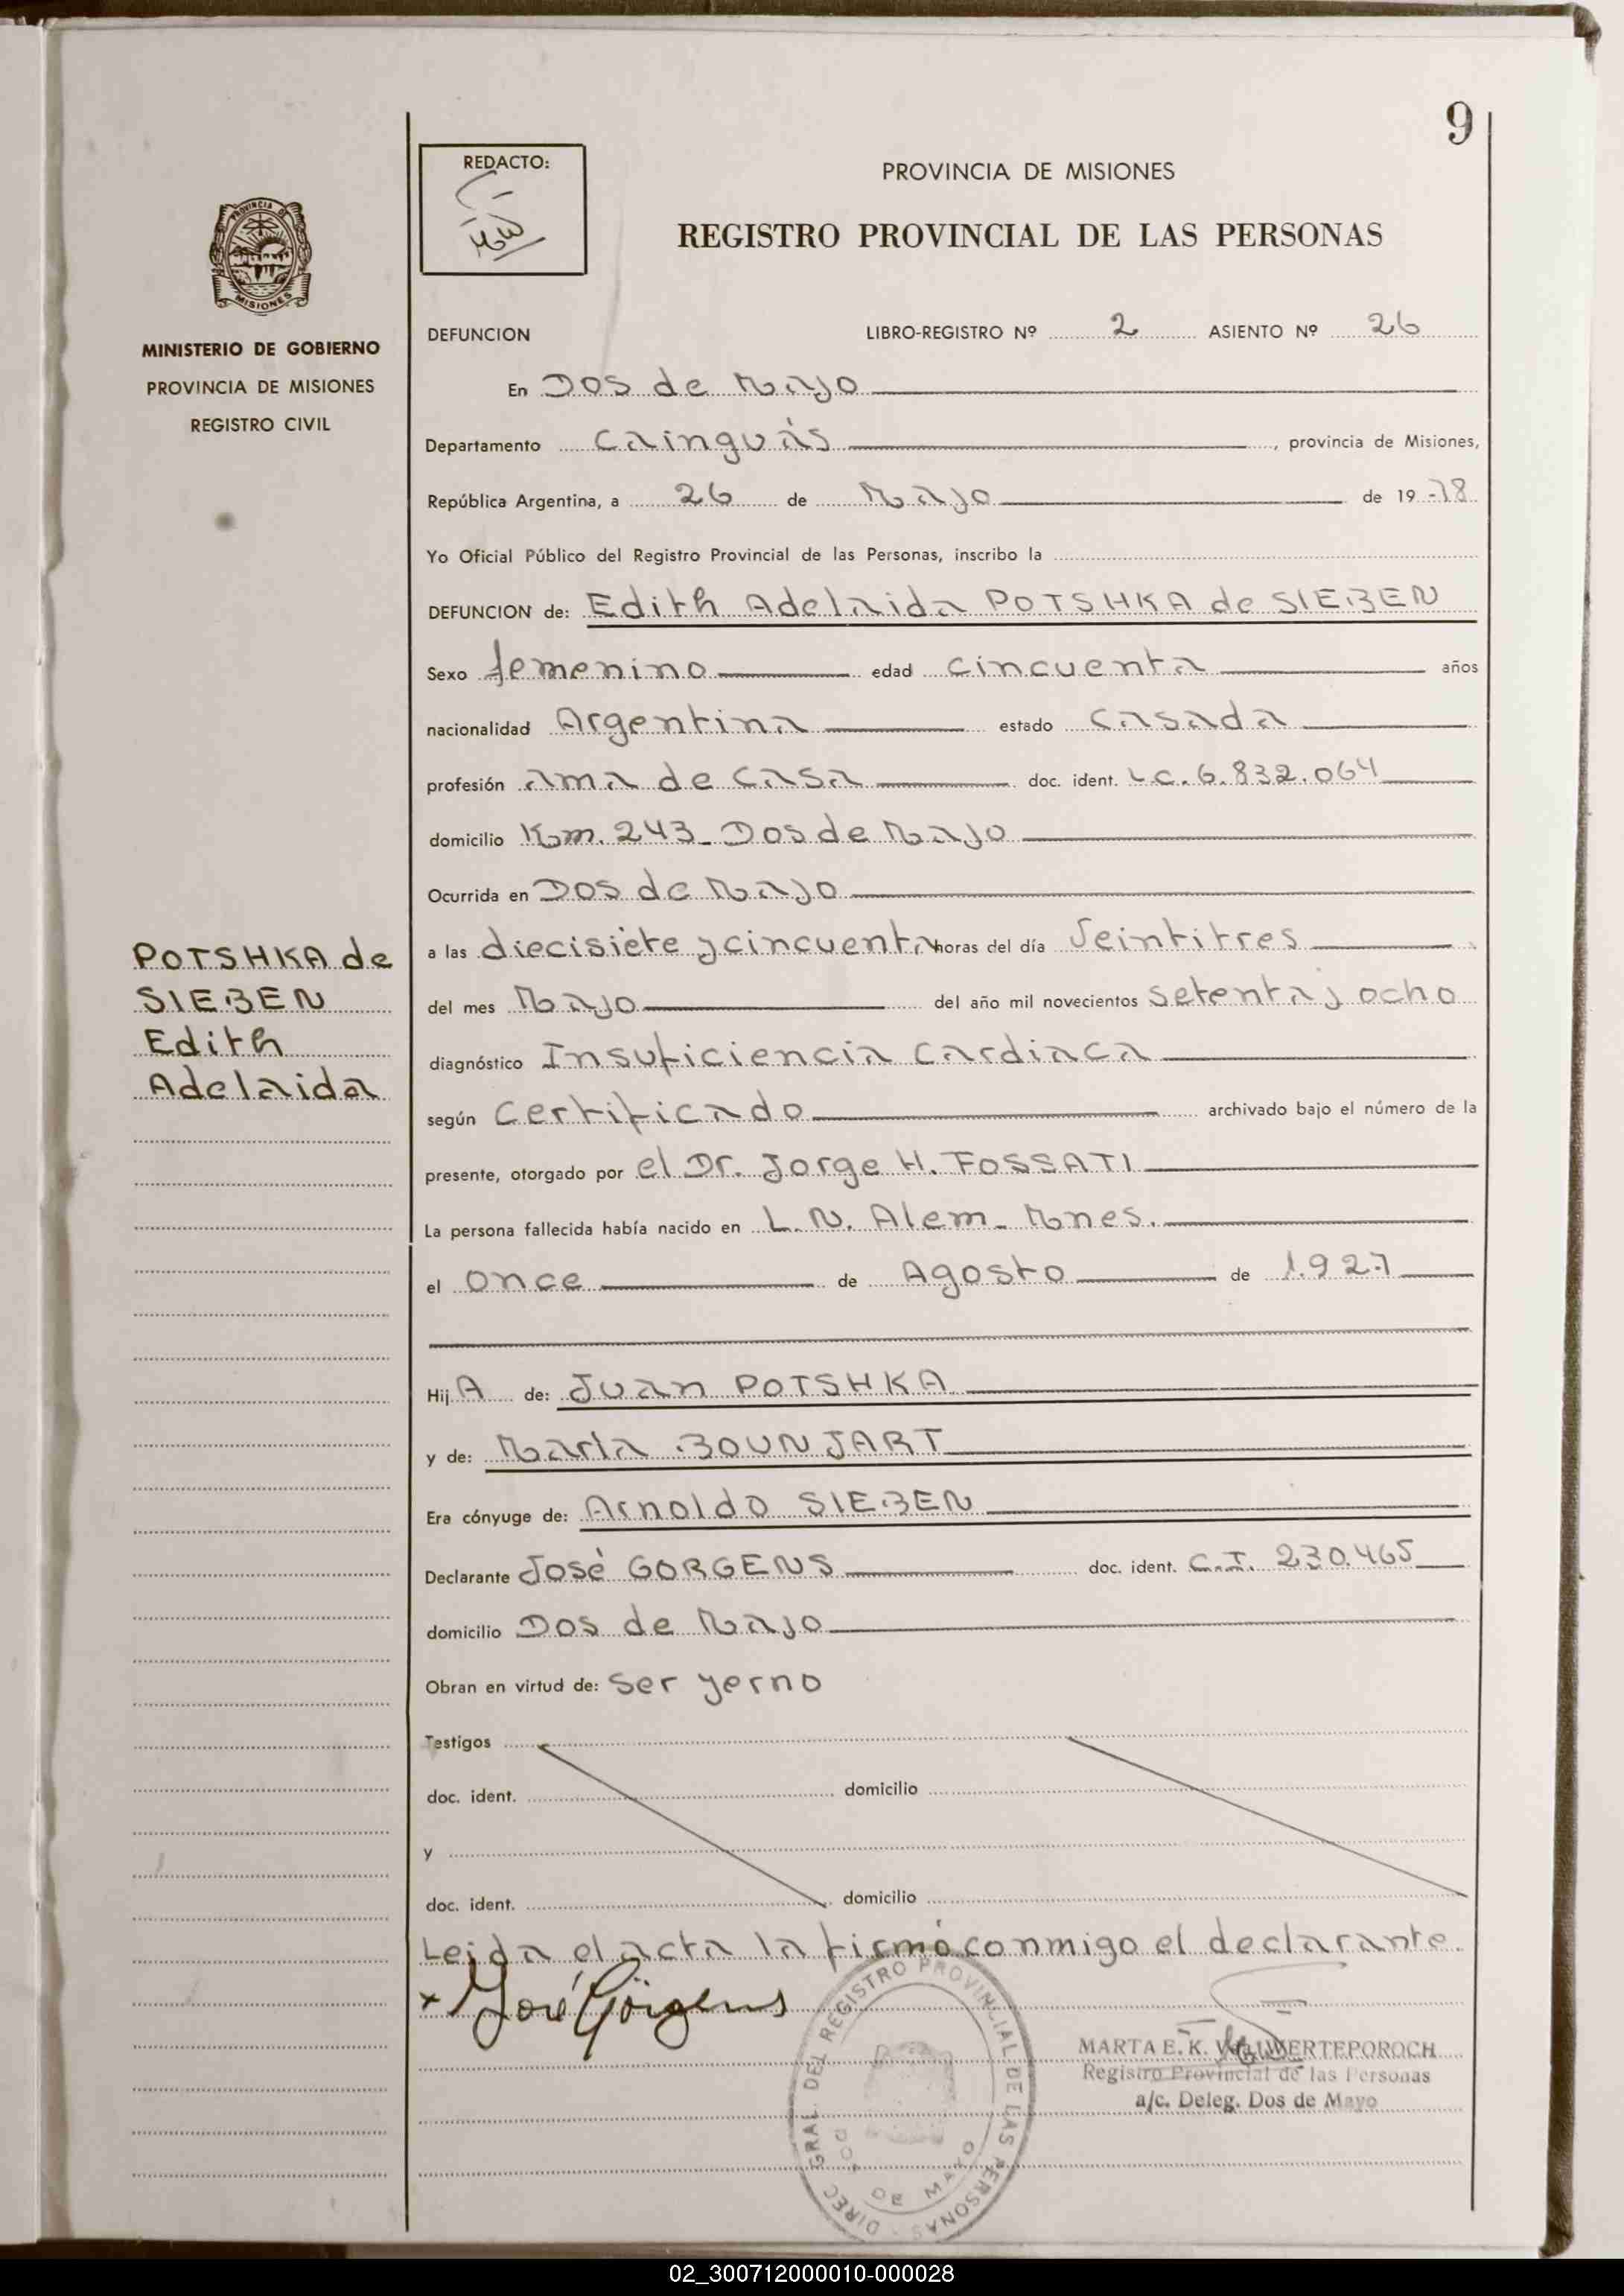 9
REDACTO:
PROVINCIA DE MISIONES
REGISTRO PROVINCIAL DE LAS PERSONAS
PROVINCIA DE
MISIONES
MINISTERIO DE GOBIERNO
PROVINCIA DE MISIONES
REGISTRO CIVIL
DEFUNCION LIBRO-REGISTRO Nº 2 ASIENTO Nº 26
En Dos de Mayo
Departamento Cainguás, provincia de Misiones,
República Argentina, a 26 de Mayo de 19 78
Yo Oficial Público del Registro Provincial de las Personas, inscribo la
DEFUNCION de: Edith Adelaida POTSHKA de SIEBEN
Sexo femenino edad cincuenta años
nacionalidad Argentina estado casada
profesión ama de casa doc. ident. L.C. 6.832.064
domicilio Km. 243 - Dos de Mayo
Ocurrida en Dos de Mayo
a las diecisiete y cincuenta horas del día veintitres
del mes Mayo del año mil novecientos setenta y ocho
diagnóstico Insuficiencia cardiaca
según certificado archivado bajo el número de la
presente, otorgado por el Dr. Jorge H. FOSSATI
La persona fallecida había nacido en L.N. Alem - Mnes.
el once de Agosto de 1.927
POTSHKA de
SIEBEN
Edith
Adelaida
Hij A de: Juan POTSHKA
y de: María BOUNJART
Era cónyuge de: Arnoldo SIEBEN
Declarante José GORGENS doc. ident. C.I. 230.465
domicilio Dos de Mayo
Obran en virtud de: ser yerno
Testigos
doc. ident. domicilio
y
doc. ident. domicilio
Leida el acta la firmó conmigo el declarante.
x José Görgens
DIREC. GRAL. DEL REGISTRO PROVINCIAL DE LAS PERSONAS
DOS DE MAYO
MARTA E. K.
Registro Provincial de las Personas
a/c. Deleg. Dos de Mayo
02_300712000010-000028